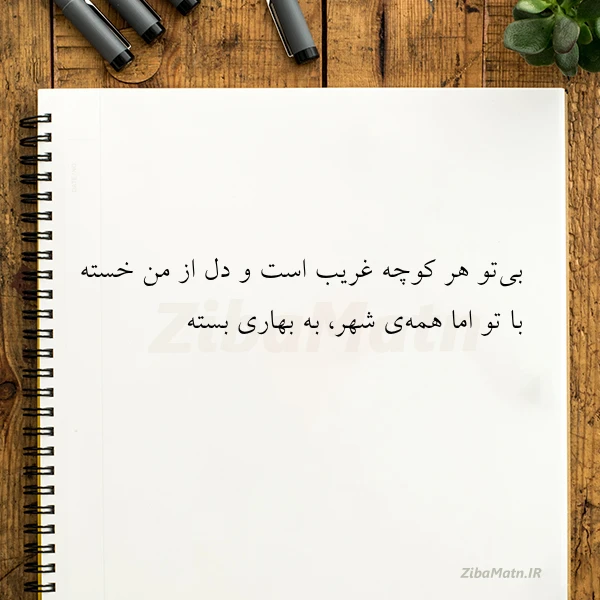 بی‌تو هر کوچه غریب است و دل از من خسته
با تو اما همه‌ی شهر، به بهاری بسته
ZibaMatn
ZibaMatn.IR